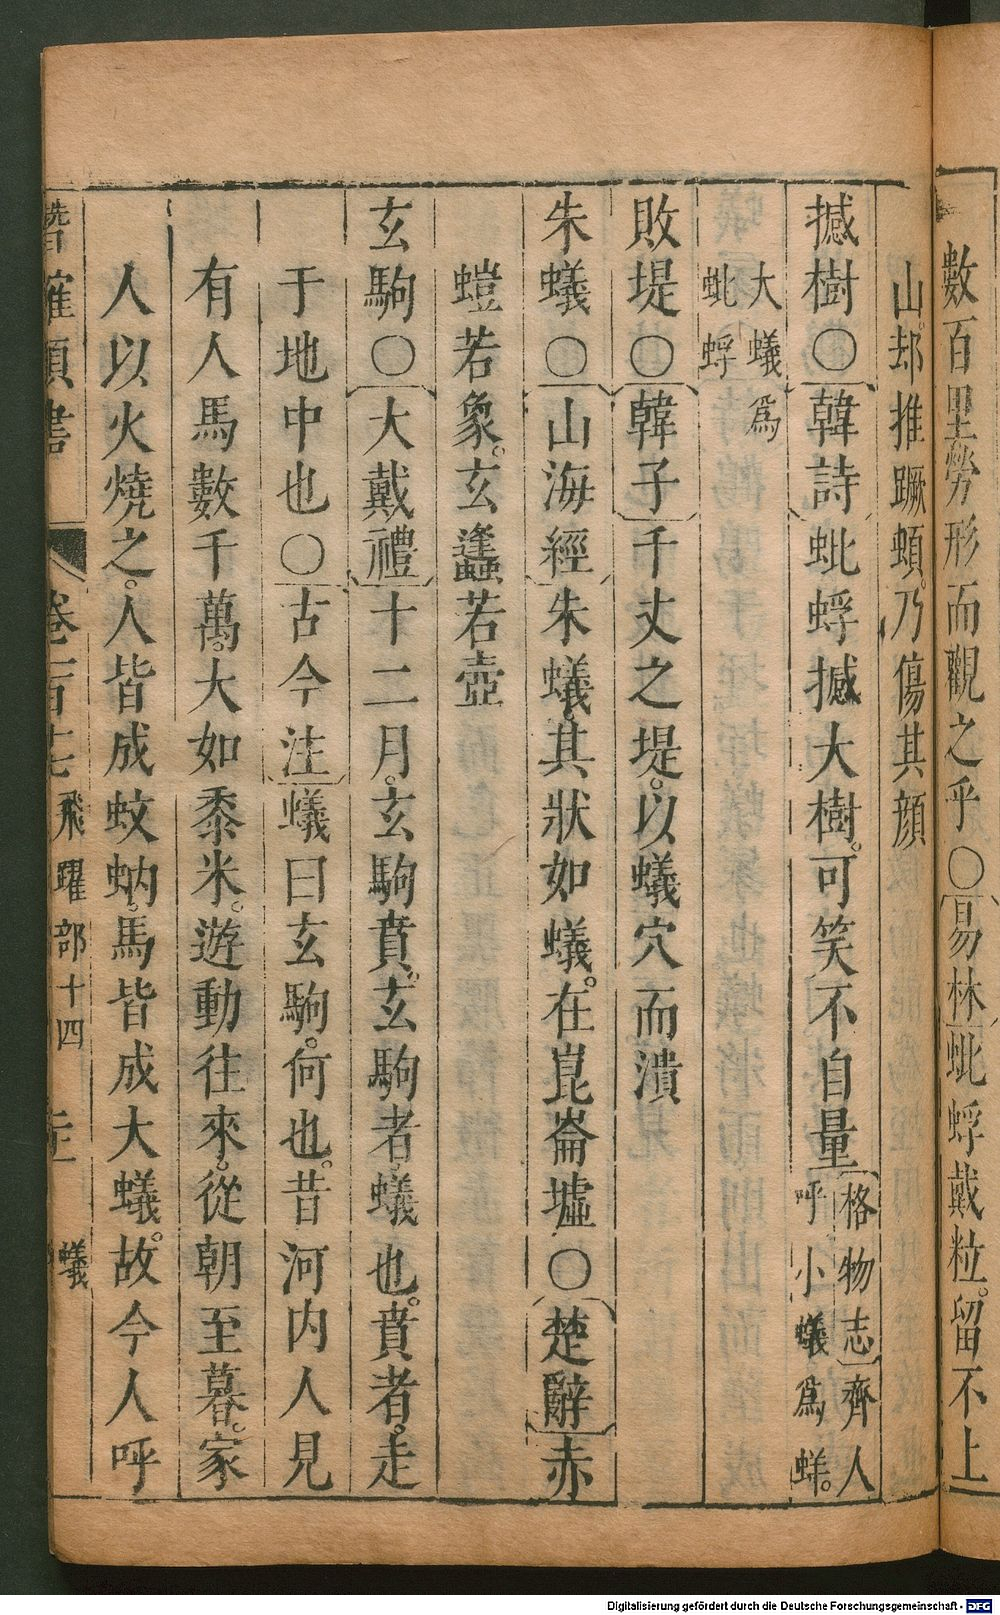 數百里勞形而觀之乎○易林蚍蜉戴粒。留不上
山。却推蹶頓。乃傷其顔
撼樹○韓詩蚍蜉撼大樹。可笑不自量格物志齊人呼小蟻爲蛘。
大蟻爲蚍蜉
敗堤○韓子千丈之堤。以蟻穴而潰
朱蟻○山海經朱蟻。其狀如蟻。在崑崙墟○楚辭赤
螘若象。玄蠭若壺
玄駒○大戴禮十二月。玄駒賁。玄駒者。蟻也。賁者。走
于地中也○古今注蟻曰玄駒。何也。昔河內人見
有人馬數千萬。大如黍米。遊動往來。從朝至暮。家
人以火燒之。人皆成蚊蚋。馬皆成大蟻。故今人呼
潛確類書 卷一百十七 飛躍部十四 蟻
Digitalisierung gefördert durch die Deutsche Forschungsgemeinschaft - DFG